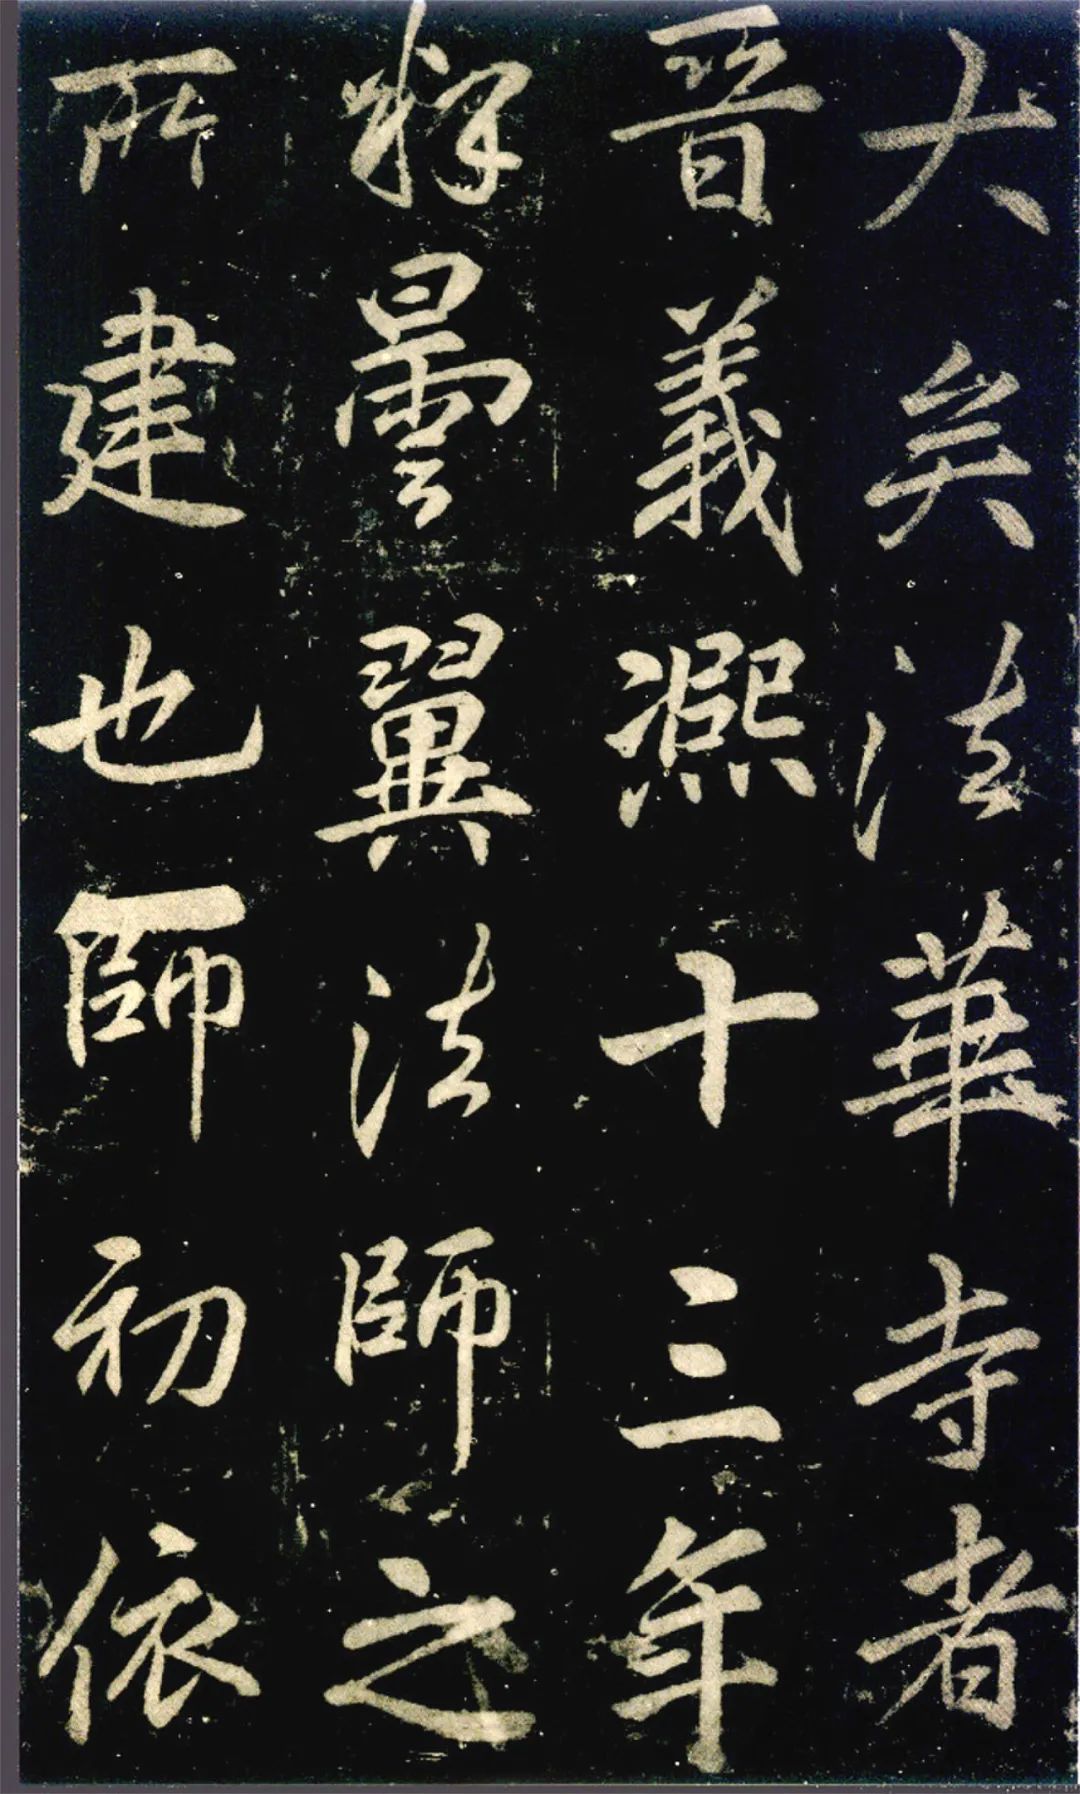 大矣法華寺者
晋義熙十三年
釋曇翼法師之
所建也師初依